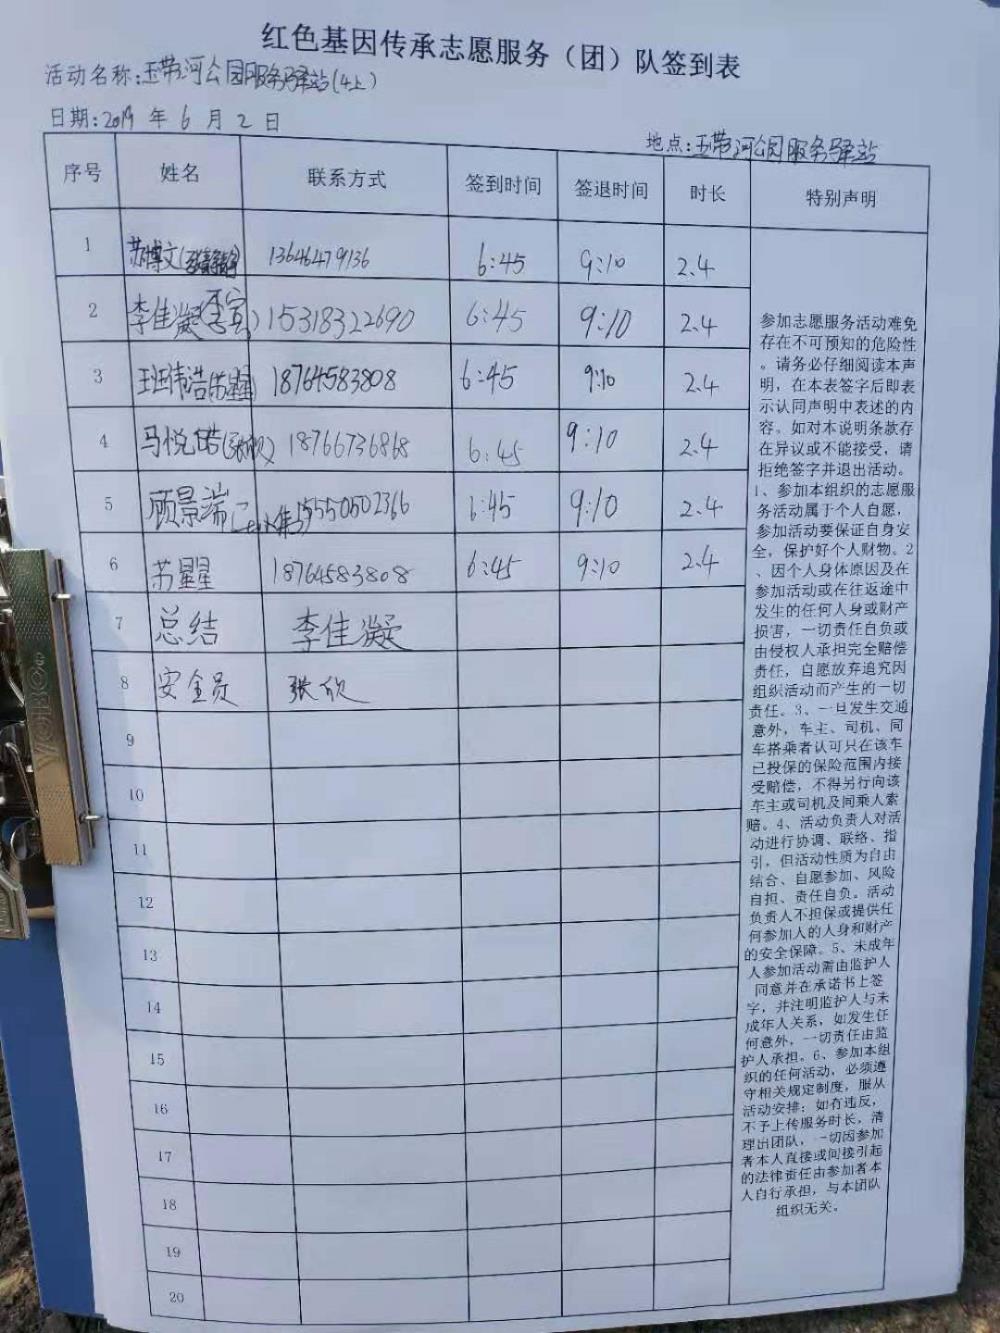 红色基因传承志愿服务（团）队签到表
活动名称:玉带河公园服务驿站(4上)
日期:2019 年 6 月 2 日
地点:玉带河公园服务驿站
序号 姓名 联系方式 签到时间 签退时间 时长 特别声明
1 苏博文 13646479136 6:45 9:10 2.4
2 李佳凝 15318322690 6:45 9:10 2.4
3 王班伟浩(苏星星) 18764583808 6:45 9:10 2.4
4 马悦皓(张欣) 18766736868 6:45 9:10 2.4
5 顾景端 15550502366 6:45 9:10 2.4
6 苏星星 18764583808 6:45 9:10 2.4
7 总结 李佳凝
8 安全员 张欣
9
10
11
12
13
14
15
16
17
18
19
20
参加志愿服务活动难免
存在不可预知的危险性
。请务必仔细阅读本声
明，在本表签字后即表
示认同声明中表述的内
容。如对本说明条款存
在异议或不能接受，请
拒绝签字并退出活动。
1、参加本组织的志愿服
务活动属于个人自愿，
参加活动要保证自身安
全，保护好个人财物。2
、因个人身体原因及在
参加活动或在往返途中
发生的任何人身或财产
损害，一切责任自负或
由侵权人承担完全赔偿
责任，自愿放弃追究因
组织活动而产生的一切
责任。3、一旦发生交通
意外，车主、司机、同
车搭乘者认可只在该车
已投保的保险范围内接
受赔偿，不得另行向该
车主或司机及同乘人索
赔。4、活动负责人对活
动进行协调、联络、指
引，但活动性质为自由
结合、自愿参加、风险
自担、责任自负。活动
负责人不担保或提供任
何参加人的人身和财产
的安全保障。5、未成年
人参加活动需由监护人
同意并在承诺书上签
字，并注明监护人与未
成年人关系，如发生任
何意外，一切责任由监
护人承担。6、参加本组
织的任何活动，必须遵
守相关规定制度，服从
活动安排；如有违反，
不予上传服务时长，清
理出团队，一切因参加
者本人直接或间接引起
的法律责任由参加者本
人自行承担，与本团队
组织无关。